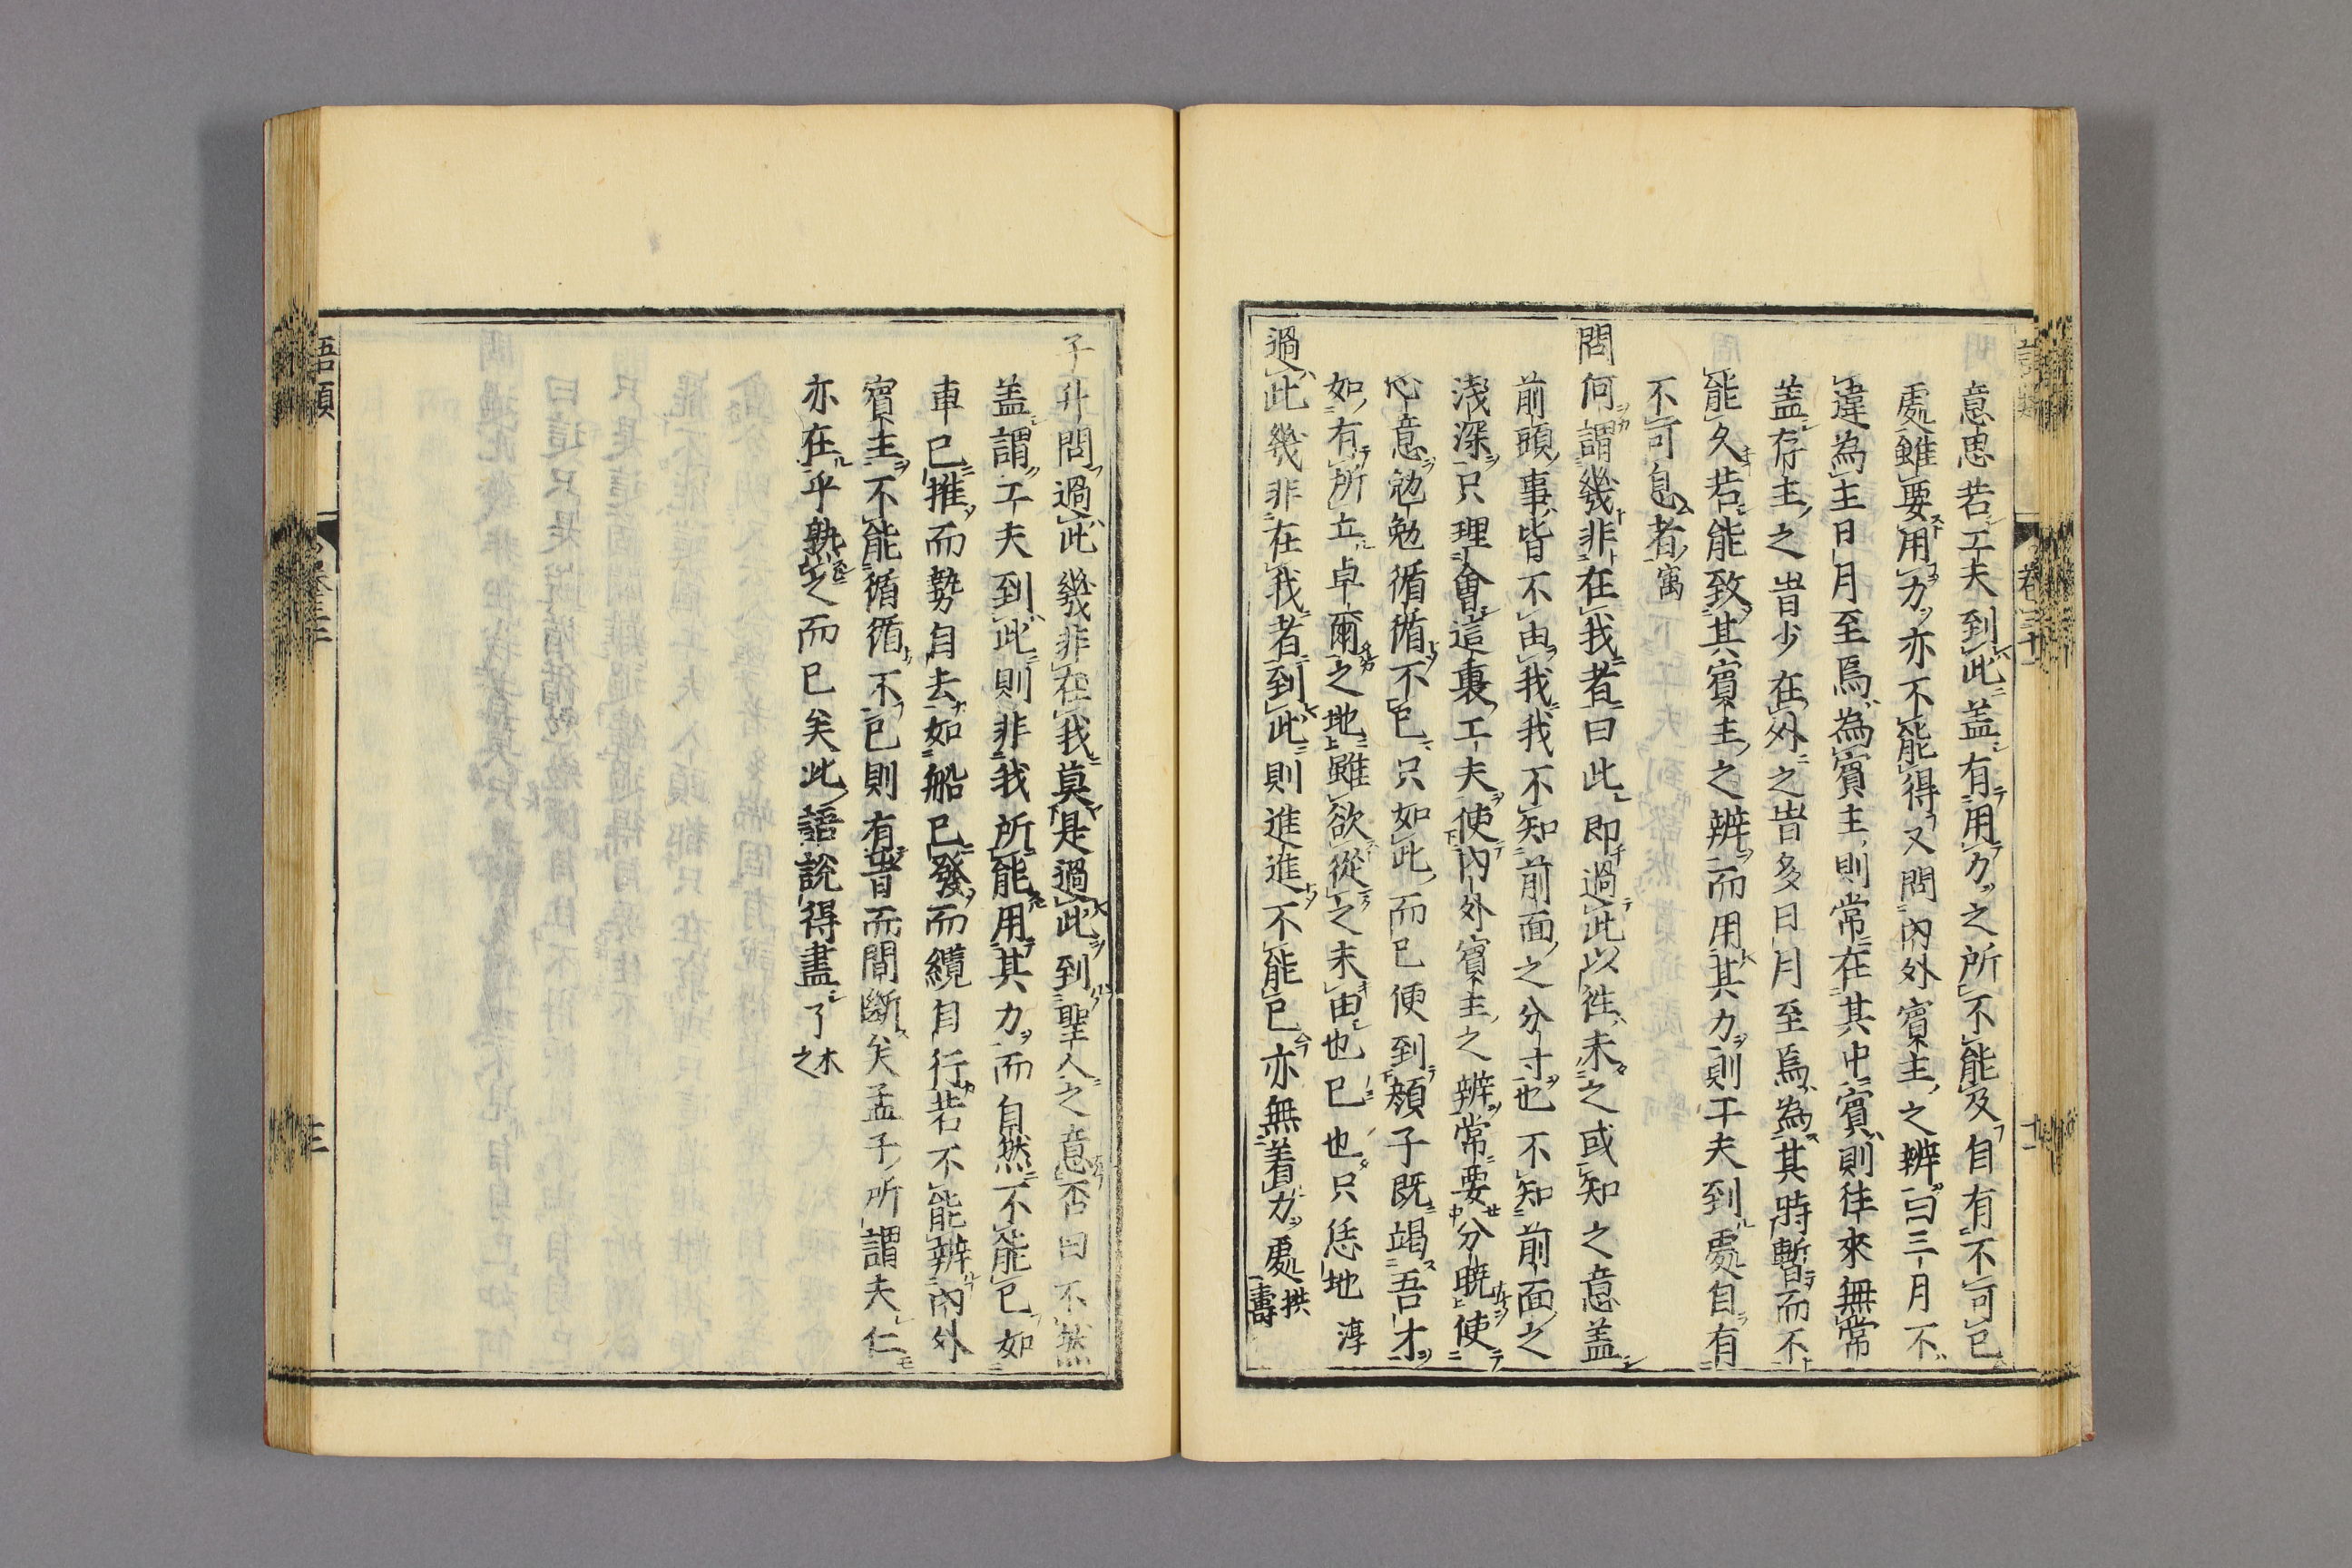 意思若工夫到此盖有用力之所不能及自有不可已
處雖要用力亦不能得又問内外賓主之辨曰三月不
違為主日月至焉為賓主則常在其中賓則徃來無常
盖存主之旹少在外之旹多日月至焉為其時暫而不
能久若能致其賓主之辨而用其力則工夫到處自有
不可息者寓
問何謂幾非在我者曰此即過此以徃未之或知之意盖
前頭事皆不由我我不知前面之分寸也不知前面之
浅深只理會這裏工夫使内外賓主之辨常要分曉使
心意勉勉循循不已只如此而已便到顏子既竭吾才
如有所立卓爾之地雖欲從之未由也已也只恁地淳
過此幾非在我者到此則進進不能已亦無着力處拱壽
子升問過此幾非在我莫是過此到聖人之意否曰不然
盖謂工夫到此則非我所能用其力而自然不能已如
車已推而勢自去如船已發而纜自行若不能辨内外
賓主不能循循不已則有旹而間斷矣孟子所謂夫仁
亦在乎熟之而已矣此語說得盡了木之
語類
卷三十一